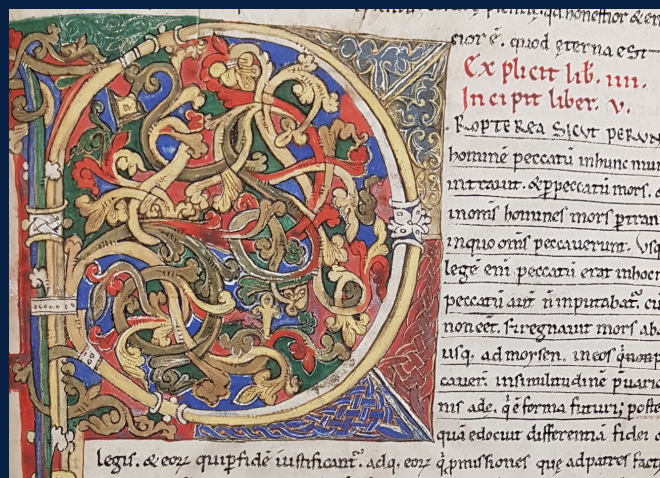 quod ęterna est
Explicit lib. iiii.
Incipit liber. v.
ROPTEREA SICUT PER UN
hominē peccatū in hunc mun
intrauit. & p peccatū mors. &
in oms homines mors ptran
in quo oms peccauerunt. Usq
legē eni peccatū erat in hoc
peccatū aut n inputabat. cū
non eet. s; regnauit mors ab
usq; ad moysen. in eos q non p
cauer. in similitudinē puaric
nis ade. q ē forma futuri; poste
quā edocuit differentia fidei
legis. & eoꝝ qui p fidē iustificant. adq, eoꝝ q pmissiones quę ad patres fact